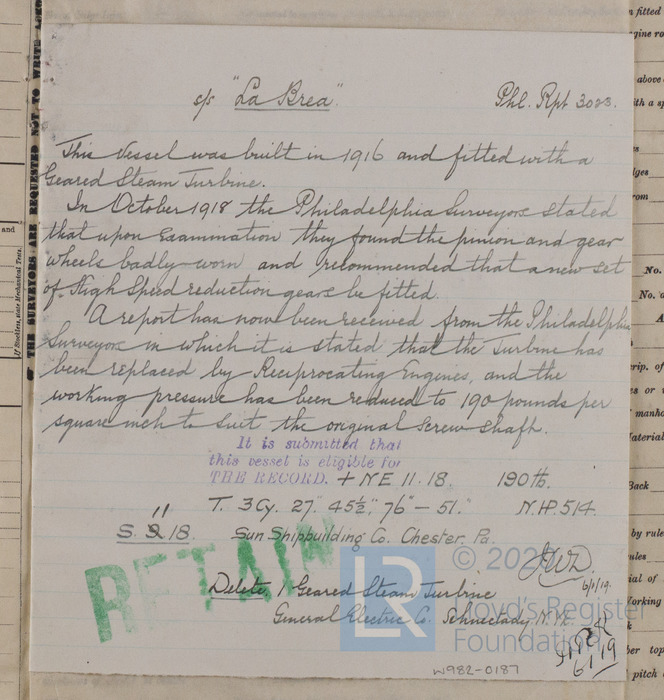 s/s "La Brea". Phl. Rpt 3083.
This Vessel was built in 1916 and fitted with a
Geared Steam Turbine.
In October 1918 the Philadelphia Surveyors stated
that upon Examination they found the pinion and gear
wheels badly worn and recommended that a new set
of High Speed reduction gears be fitted.
A report has now been received from the Philadelphia
Surveyors in which it is stated that the Turbine has
been replaced by Reciprocating Engines, and the
working pressure has been reduced to 190 pounds per
square inch to suit the original Screw Shaft.
It is submitted that
this vessel is eligible for
THE RECORD. + NE 11.18. 190 lb.
T. 3 Cy. 27" 45½", 76" – 51." N.H.P. 514.
11
S. 2.18. Sun Shipbuilding Co. Chester. Pa.
RETAIN
Delete Geared Steam Turbine
General Electric Co. Schnectady N.Y.
JWD
6/1/19.
6/1/19
W982-0187
LR
© 202
Lloyd's Register
Foundation
OF THE SURVEYORS ARE REQUESTED NOT TO WRITE
If Steelters, state Mechanical Tests.
and
fitted
above
No.
Back
by rule
ial of
top
pitch